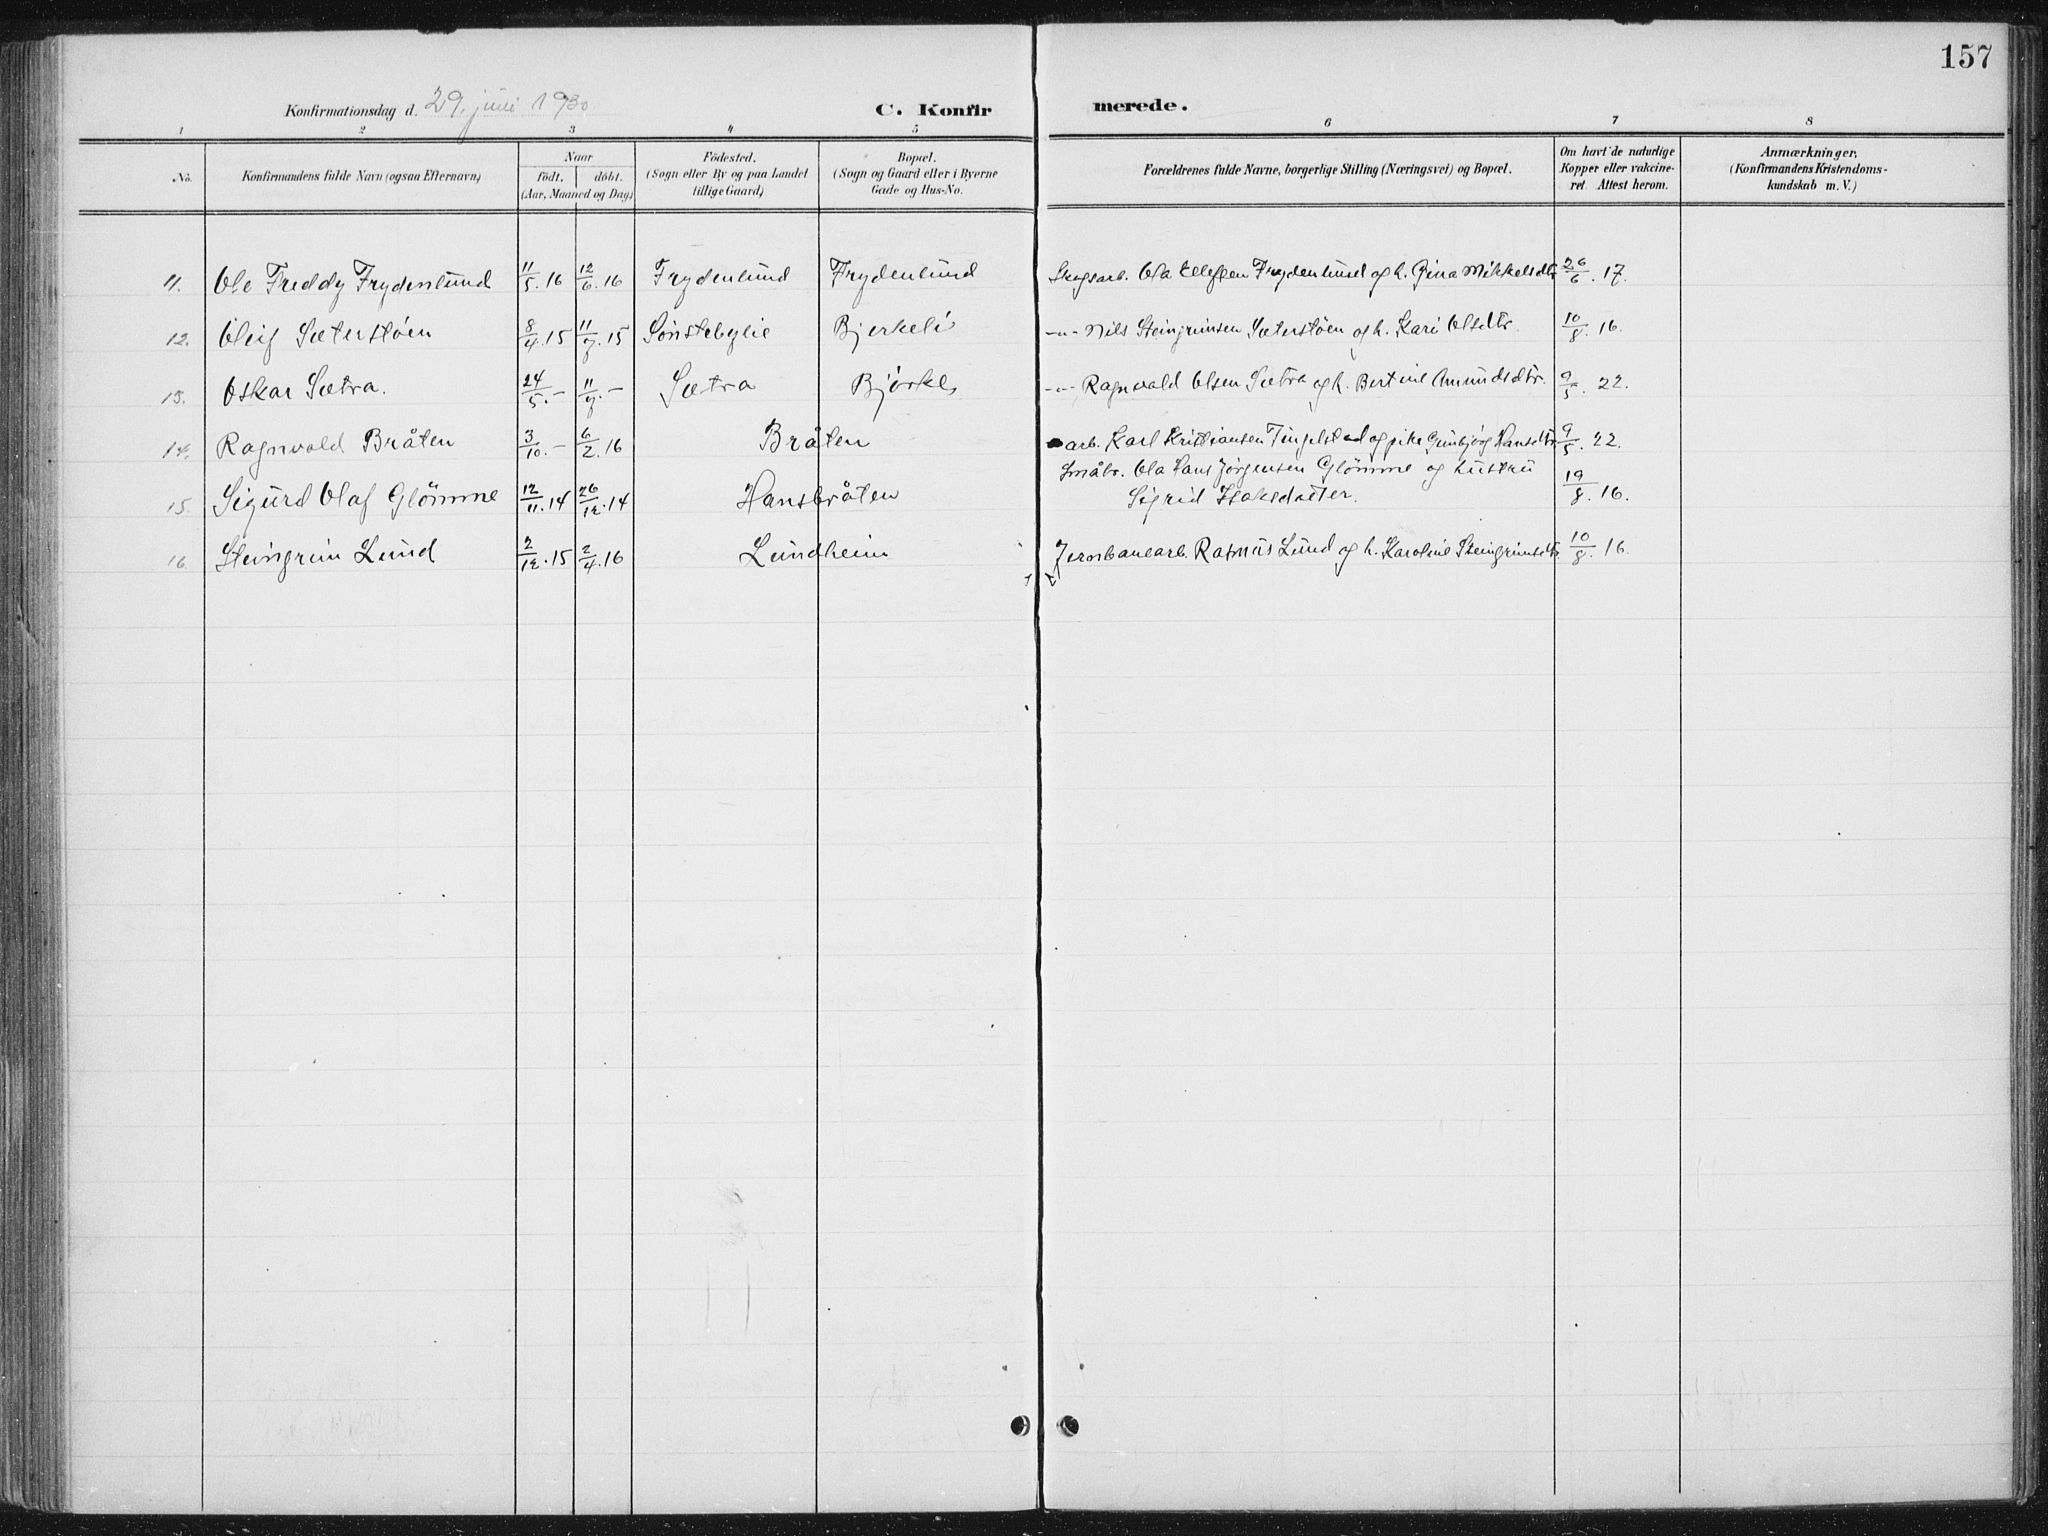 157
Konfirmationsdag d. 29. juni 1930 C. Konfirmerede.
1 2 3 4 5 6 7 8
No. Konfirmandens fulde Navn (ogsaa Efternavn) Naar födt. döbt. (Aar, Maaned og Dag) Födested. (Sogn eller By og paa Landet tillige Gaard) Bopæl. (Sogn og Gaard eller i Byerne Gade og Hus-No. Forældrenes fulde Navne, borgerlige Stilling (Næringsvei) og Bopæl. Om havt de naturlige Kopper eller vakcineret Attest herom. Anmærkninger, (Konfirmandens Kristendomskundskab m. V.)
11. Ole Freddy Frydenlund 11/5.16 12/6.16 Frydenlund Frydenlund Skogsarb. Ola Ellefsen Frydenlund og h. Gina Mikkelsdtr 26/6.17.
12. Oleif Sæterstøen 8/4.15 11/7.15 Sønstebylie Bjerkeli -"- Nils Steingrimsen Sæterstøen og h. Kari Olsdtr. 10/8.16.
13. Oskar Sætra. 24/5.- 11/7.- Sætra Bjørke -"- Ragnvald Olsen Sætra og h. Bertine Amundsdtr. 9/5.22.
14. Ragnvald Bråten 3/10.- 6/2.16 Bråten arb. Karl Kristiansen Tingelstad og pike Gunbjørg Hansdtr 9/5.22.
15. Sigurd Olaf Glömme 12/11.14 26/12.14 Hansbråten Småbr. Ola Hans Jörgensen Glömme og hustru
Sigrid Isaksdatter. 19/8.16.
16. Steingrim Lund 2/12.15 2/4.16 Lundheim Jernbanearb. Rasmus Lund og h. Karoline Steingrimsdtr. 10/8.16.